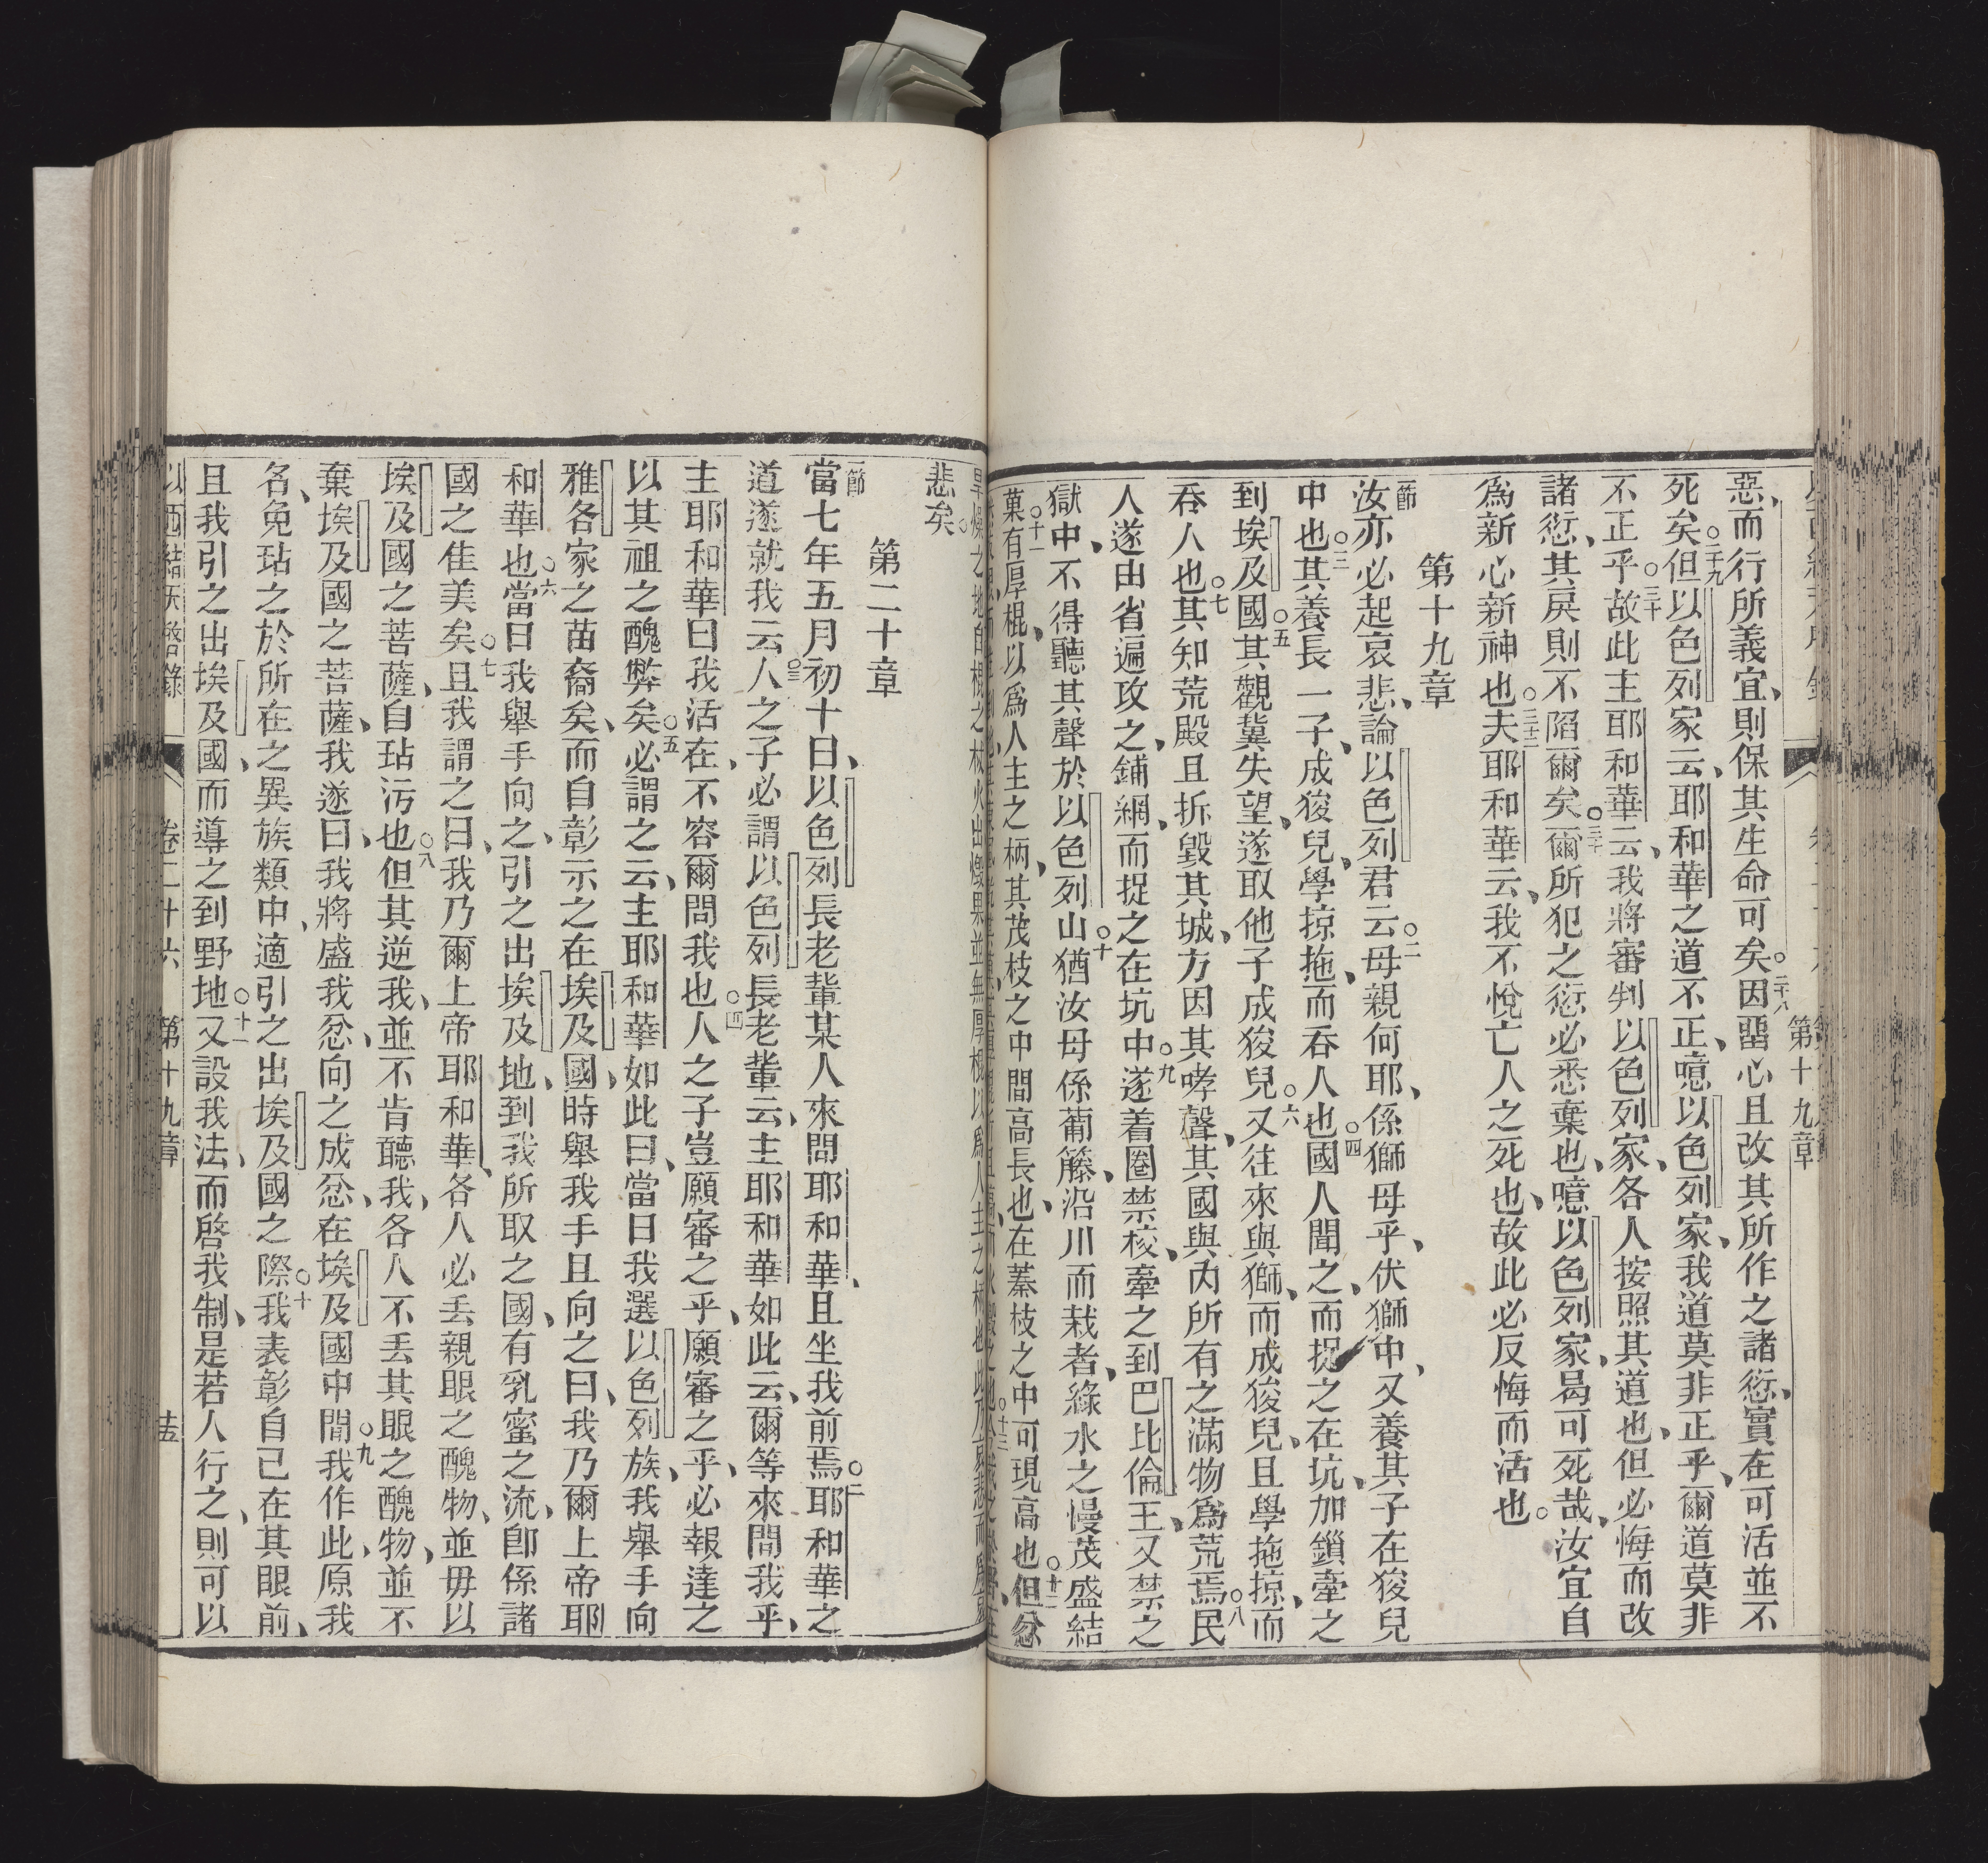 第十九章
惡、而行所義宜、則保其生命可矣。二十八因惡心且改其所作之諸愆、實在可活並不
死矣。二十九但以色列家云、耶和華之道不正、噫以色列家、我道莫非正乎、爾道莫非
不正乎。三十故此主耶和華云、我將審判以色列家、各人按照其道也、但必悔而改
諸愆、其戾則不陷爾矣。三十一爾所犯之愆必悉棄也、噫以色列家、曷可死哉、汝宜自
爲新心新神也。三十二夫耶和華云、我不悅亡人之死也、故此必反悔而活也。
第十九章
一節汝亦必起哀悲、論以色列君云。二母親何耶、係獅母乎、伏獅中、又養其子在狻兒
中也。三其養長一子、成狻兒、學掠拖、而吞人也。四國人聞之、而捉之在坑、加鎖牽之
到埃及國。五其觀冀失望、遂取他子成狻兒。六又往來與獅、而成狻兒、且學拖掠、而
吞人也。七其知荒殿且拆毀其城、方因其哮聲、其國與內所有之滿物爲荒焉。八民
人遂由省遍攻之、鋪網、而捉之在坑中。九遂着圈禁校、牽之到巴比倫王、又禁之
獄中、不得聽其聲於以色列山。十猶汝母係葡籐、沿川而栽者、緣水之慢茂盛結
菓。十一有厚棍、以爲人主之柄、其茂枝之中間高長也、在蓁枝之中可現高也。十二但忿
悲矣。
第二十章
一節當七年五月初十日、以色列長老輩某人來問耶和華、且坐我前焉。二耶和華之
道遂就我云。三人之子必謂以色列長老輩云、主耶和華如此云、爾等來問我乎、
主耶和華曰我活在、不容爾問我也。四人之子豈願審之乎、願審之乎、必報達之
以其祖之醜弊矣。五必謂之云、主耶和華如此曰、當日我選以色列族、我舉手向
雅各家之苗裔矣、而自彰示之在埃及國、時舉我手且向之曰、我乃爾上帝耶
和華也。六當日我舉手向之、引之出埃及地、到我所取之國、有乳蜜之流、卽係諸
國之佳美矣。七且我謂之曰、我乃爾上帝耶和華、各人必丟親眼之醜物、並毋以
埃及國之菩薩、自玷污也。八但其逆我、並不肯聽我、各人不丟其眼之醜物、並不
棄埃及國之菩薩、我遂曰、我將盛我忿向之成忿、在埃及國中間。九我作此、原我
名、免玷之於所在之異族類中、適引之出埃及國之際。十我表彰自己在其眼前、
且我引之出埃及國、而導之到野地。十一又設我法、而啓我制、是若人行之、則可以
以西結天啓錄 卷二十六 第十九章